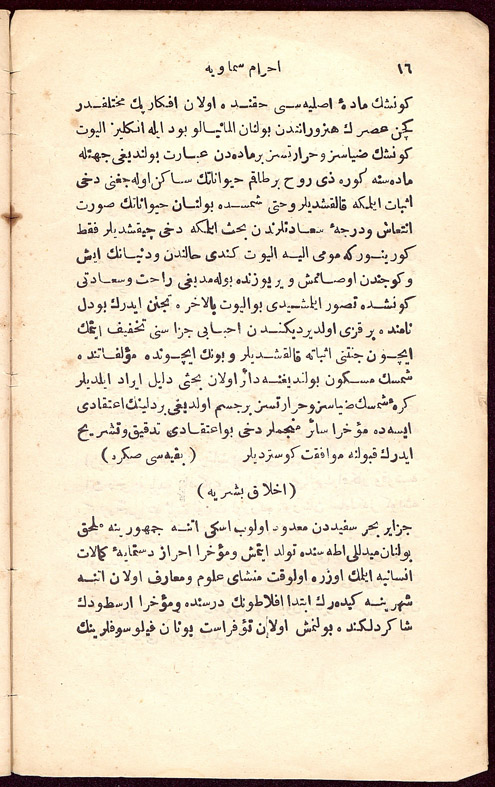 ١٦
اجرام سماويه
كونشك مادۀ اصليه سى حقنده اولان افكار پك مختلفدر
كچن عصرك هنرورانندن بولنان المانيالو بود ايله انكليز اليوت
كونشك ضياسز و حرارتسز بر ماده دن عبارت بولنديغى جهتله
ماده سنه كوره ذى روح بر طاقم حيواناتك ساكن اوله جغنى دخى
اثبات ايلمكه قالقشديلر وحتى شمسده بولنان حيواناتك صورت
انتعاش ودرجۀ سعادتلرندن بحث ايلمكه دخى چيقشديلر فقط
كورينوركه مومى اليه اليوت كندى حالندن ودنيانك ايش
وكوجندن اوصانمش و ير يوزنده بوله مديغى راحت وسعادتى
كونشده تصور ايلمشيدى بو اليوت بالاخره تجنن ايدرك بودل
نامنده بر قزى اولديرديكندن احبابى جزاسنى تخفيف ايتمك
ايچون جنتنى اثباته قالقشديلر و بونك ايچونده مؤلفاتنده
شمسك مسكون بولنديغنه دائر اولان بحثى دليل ايراد ايلديلر
كرۀ شمسك ضياسز و حرارتسز بر جسم اولديغى بو دلينك اعتقادى
ايسه ده مؤخرا سائر منجملر دخى بو اعتقادى تدقيق وتشريح
ايدرك قبولنه موافقت كوسترديلر ( بقيه سى صكره )
( اخلاق بشريه )
جزاير بحر سفيددن معدود اولوب اسكى آتنه جمهورينه ملحق
بولنان ميدللى اطه سنده تولد ايتمش ومؤخرا احراز دستمايۀ كمالات
انسانيه ايلمك اوزره اولوقت منشاى علوم ومعارف اولان آتنه
شهرينه كيدەرك ابتدا افلاطونك درسنده ومؤخرا ارسطودك
شاكردلكنده بولنمش اولان تئوفراست يونان فيلوسوفلرينك